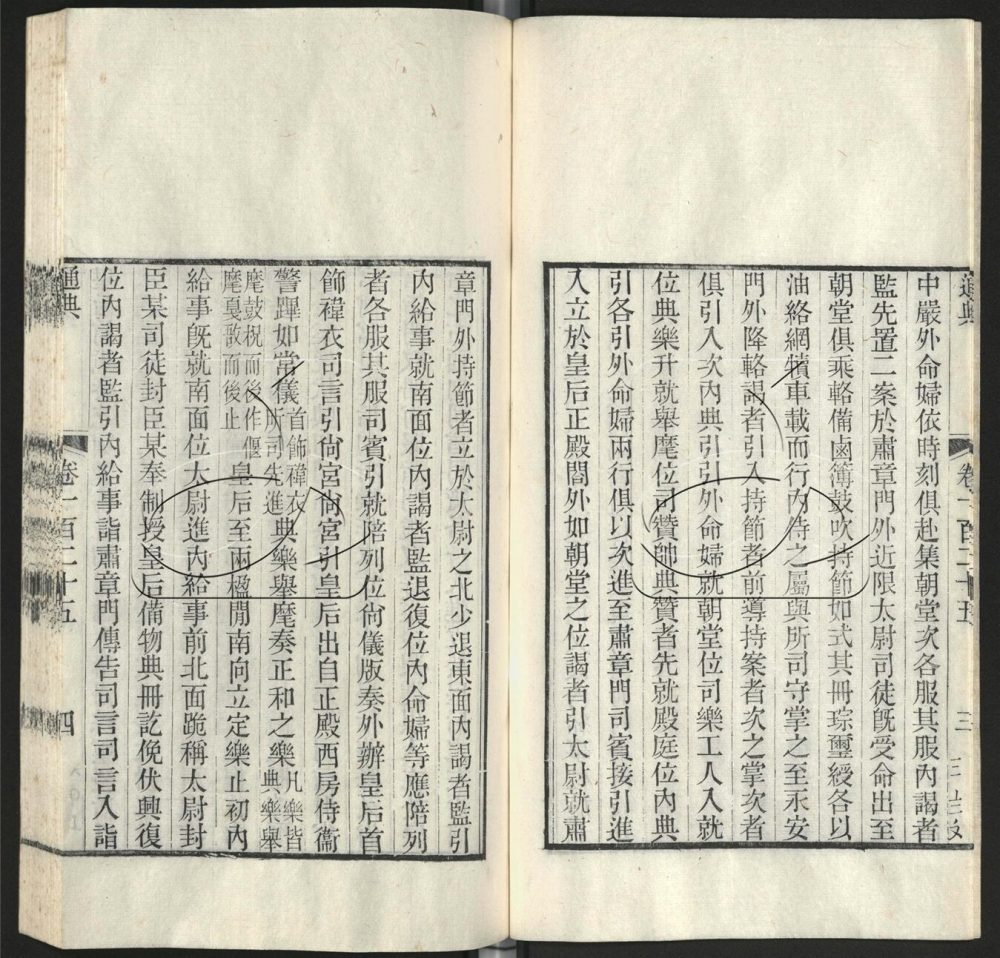 通典
卷一百二十五
三
中嚴外命婦依時刻俱赴集朝堂次各服其服內謁者
監先置二案於肅章門外近限太尉司徒旣受命出至
朝堂俱乘輅備鹵簿鼓吹持節如式其冊琮璽綬各以
油絡網犢車載而行內侍之屬與所司守掌之至永安
門外降輅謁者引入持節者前導持案者次之掌次者
俱引入次內典引引外命婦就朝堂位司樂工人入就
位典樂升就舉麾位司贊帥典贊者先就殿庭位內典
引各引外命婦兩行俱以次進至肅章門司賓接引進
入立於皇后正殿閤外如朝堂之位謁者引太尉就肅
章門外持節者立於太尉之北少退東面內謁者監引
內給事就南面位內謁者監退復位內命婦等應陪列
者各服其服司賓引就陪列位尙儀版奏外辦皇后首
飾褘衣司言引尙宮尙宮引皇后出自正殿西房侍衞
警蹕如常儀首飾褘衣所司先進典樂舉麾奏正和之樂凡樂皆典樂舉
麾鼓柷而後作偃麾戛敔而後止皇后至兩楹閒南向立定樂止初內
給事旣就南面位太尉進內給事前北面跪稱太尉封
臣某司徒封臣某奉制授皇后備物典冊訖俛伏興復
位內謁者監引內給事詣肅章門傳告司言司言入詣
通典
卷一百二十五
四